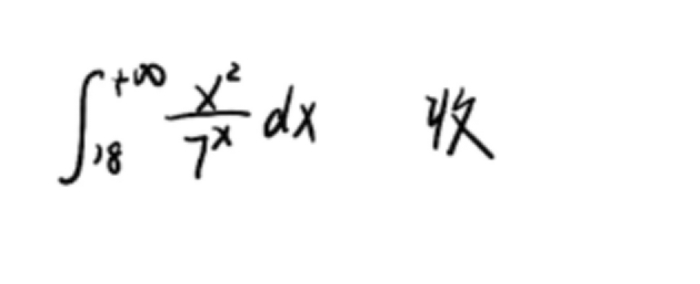 $\int_{18}^{+\infty} \frac{x^2}{7^x} dx$ 收